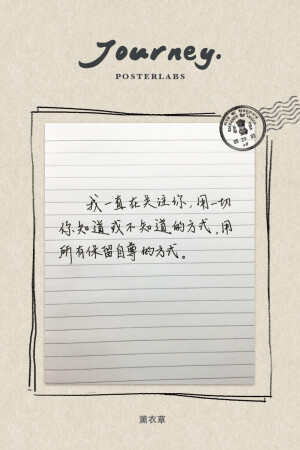 Journey.
POSTERLABS
我一直在关注你，用一切
你知道或不知道的方式，用
所有保留自尊的方式。
薰衣草